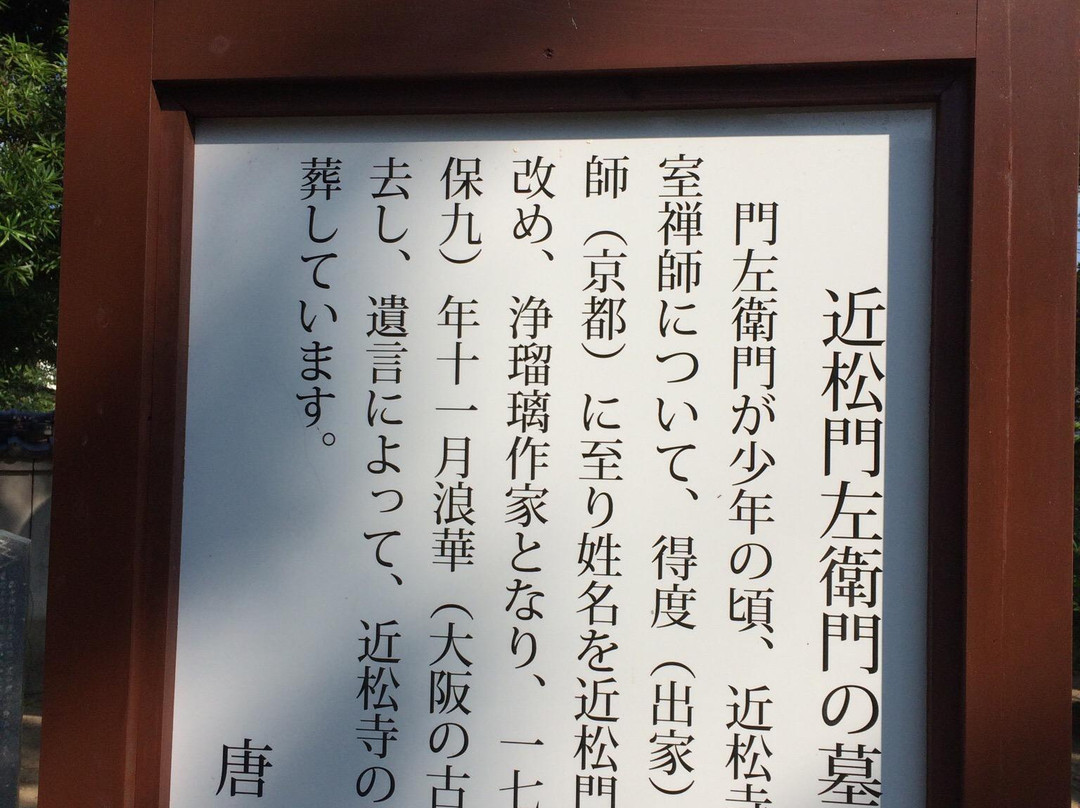 近松門左衛門の墓
門左衛門が少年の頃、近松寺
室禅師について、得度（出家）
師（京都）に至り姓名を近松門
改め、浄瑠璃作家となり、一七
保九）年十一月浪華（大阪の古
去し、遺言によって、近松寺の
葬しています。
唐